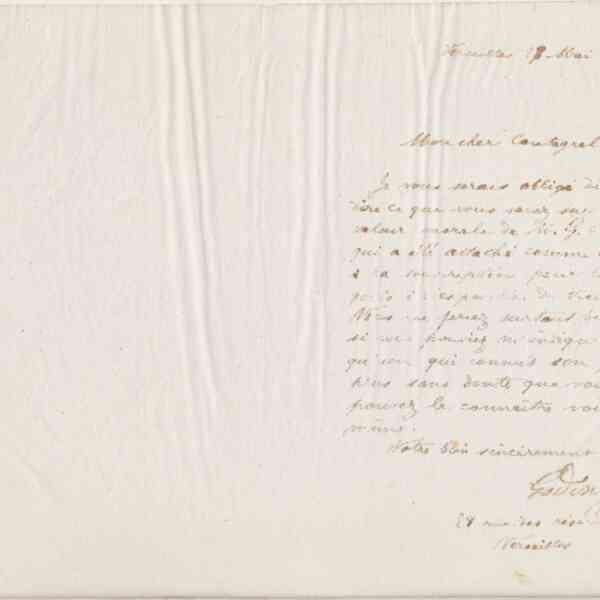 Versailles 18 Mai
Mon cher Cantagrel
Je vous serais obligé de
dire ce que vous savez sur
valeur morale de M. G.
qui a été attaché comme
à la souscription pour
Vous me feriez surtout
si vous pouviez m'indiquer
qu'un qui connût son
plus sans doute que vous
pouvez le connaître vous
même.
Votre bien sincèrement
Godin
28 rue des rés
Versailles